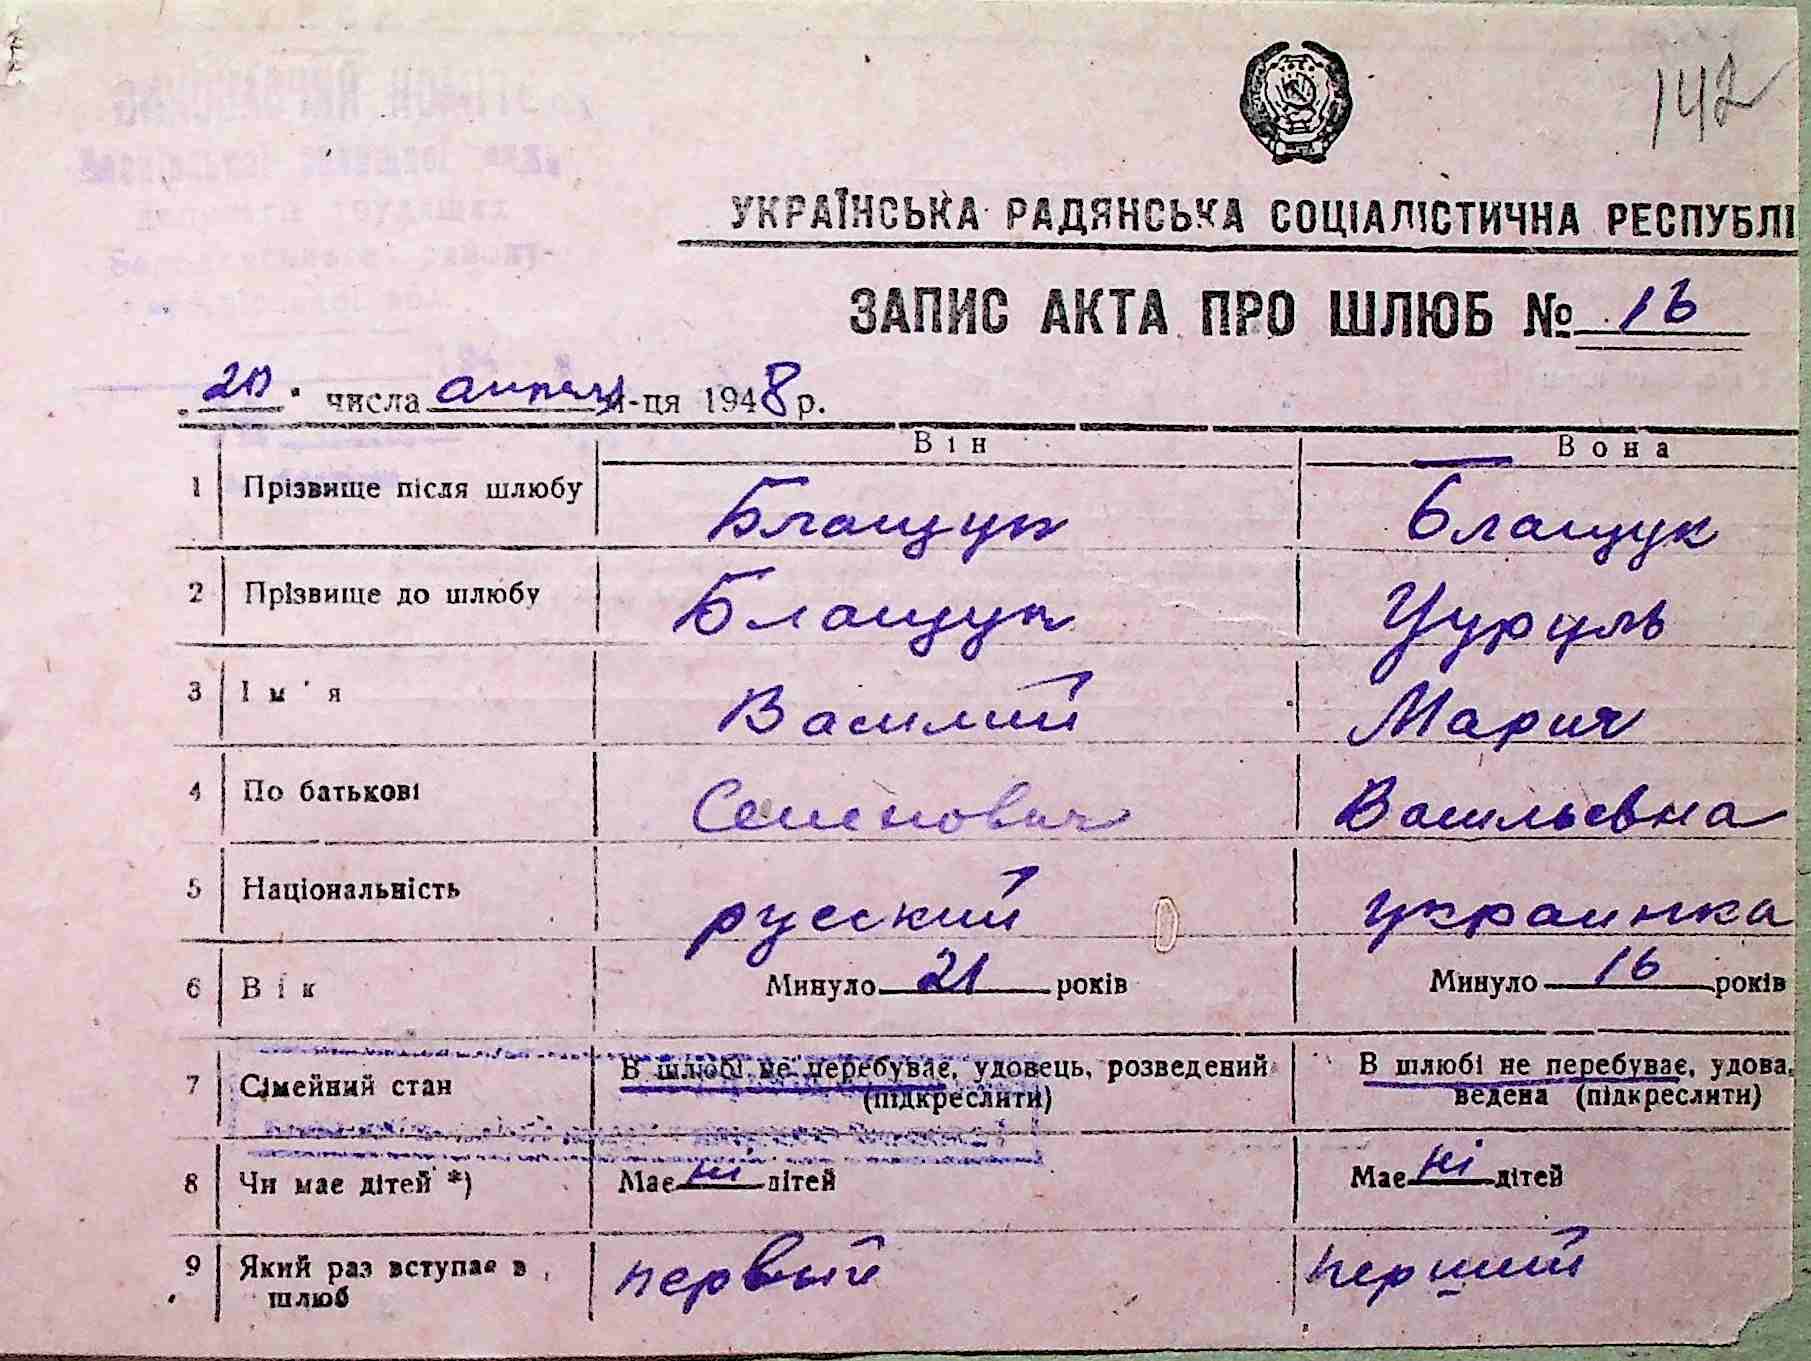 142
УКРАЇНСЬКА РАДЯНСЬКА СОЦІАЛІСТИЧНА РЕСПУБЛІ
ЗАПИС АКТА ПРО ШЛЮБ № 16
20 числа апреля м-ця 1948 р.
Він Вона
1 Прізвище після шлюбу Блащук Блащук
2 Прізвище до шлюбу Блащук Цуруль
3 Ім'я Василий Мария
4 По батькові Семенович Васильевна
5 Національність русский украинка
6 Вік Минуло 21 років Минуло 16 років
7 Сімейний стан В шлюбі не перебуває, удовець, розведений В шлюбі не перебуває, удова,
(підкреслити) ведена (підкреслити)
8 Чи має дітей *) Має ні дітей Має ні дітей
9 Який раз вступає в первый перший
шлюб